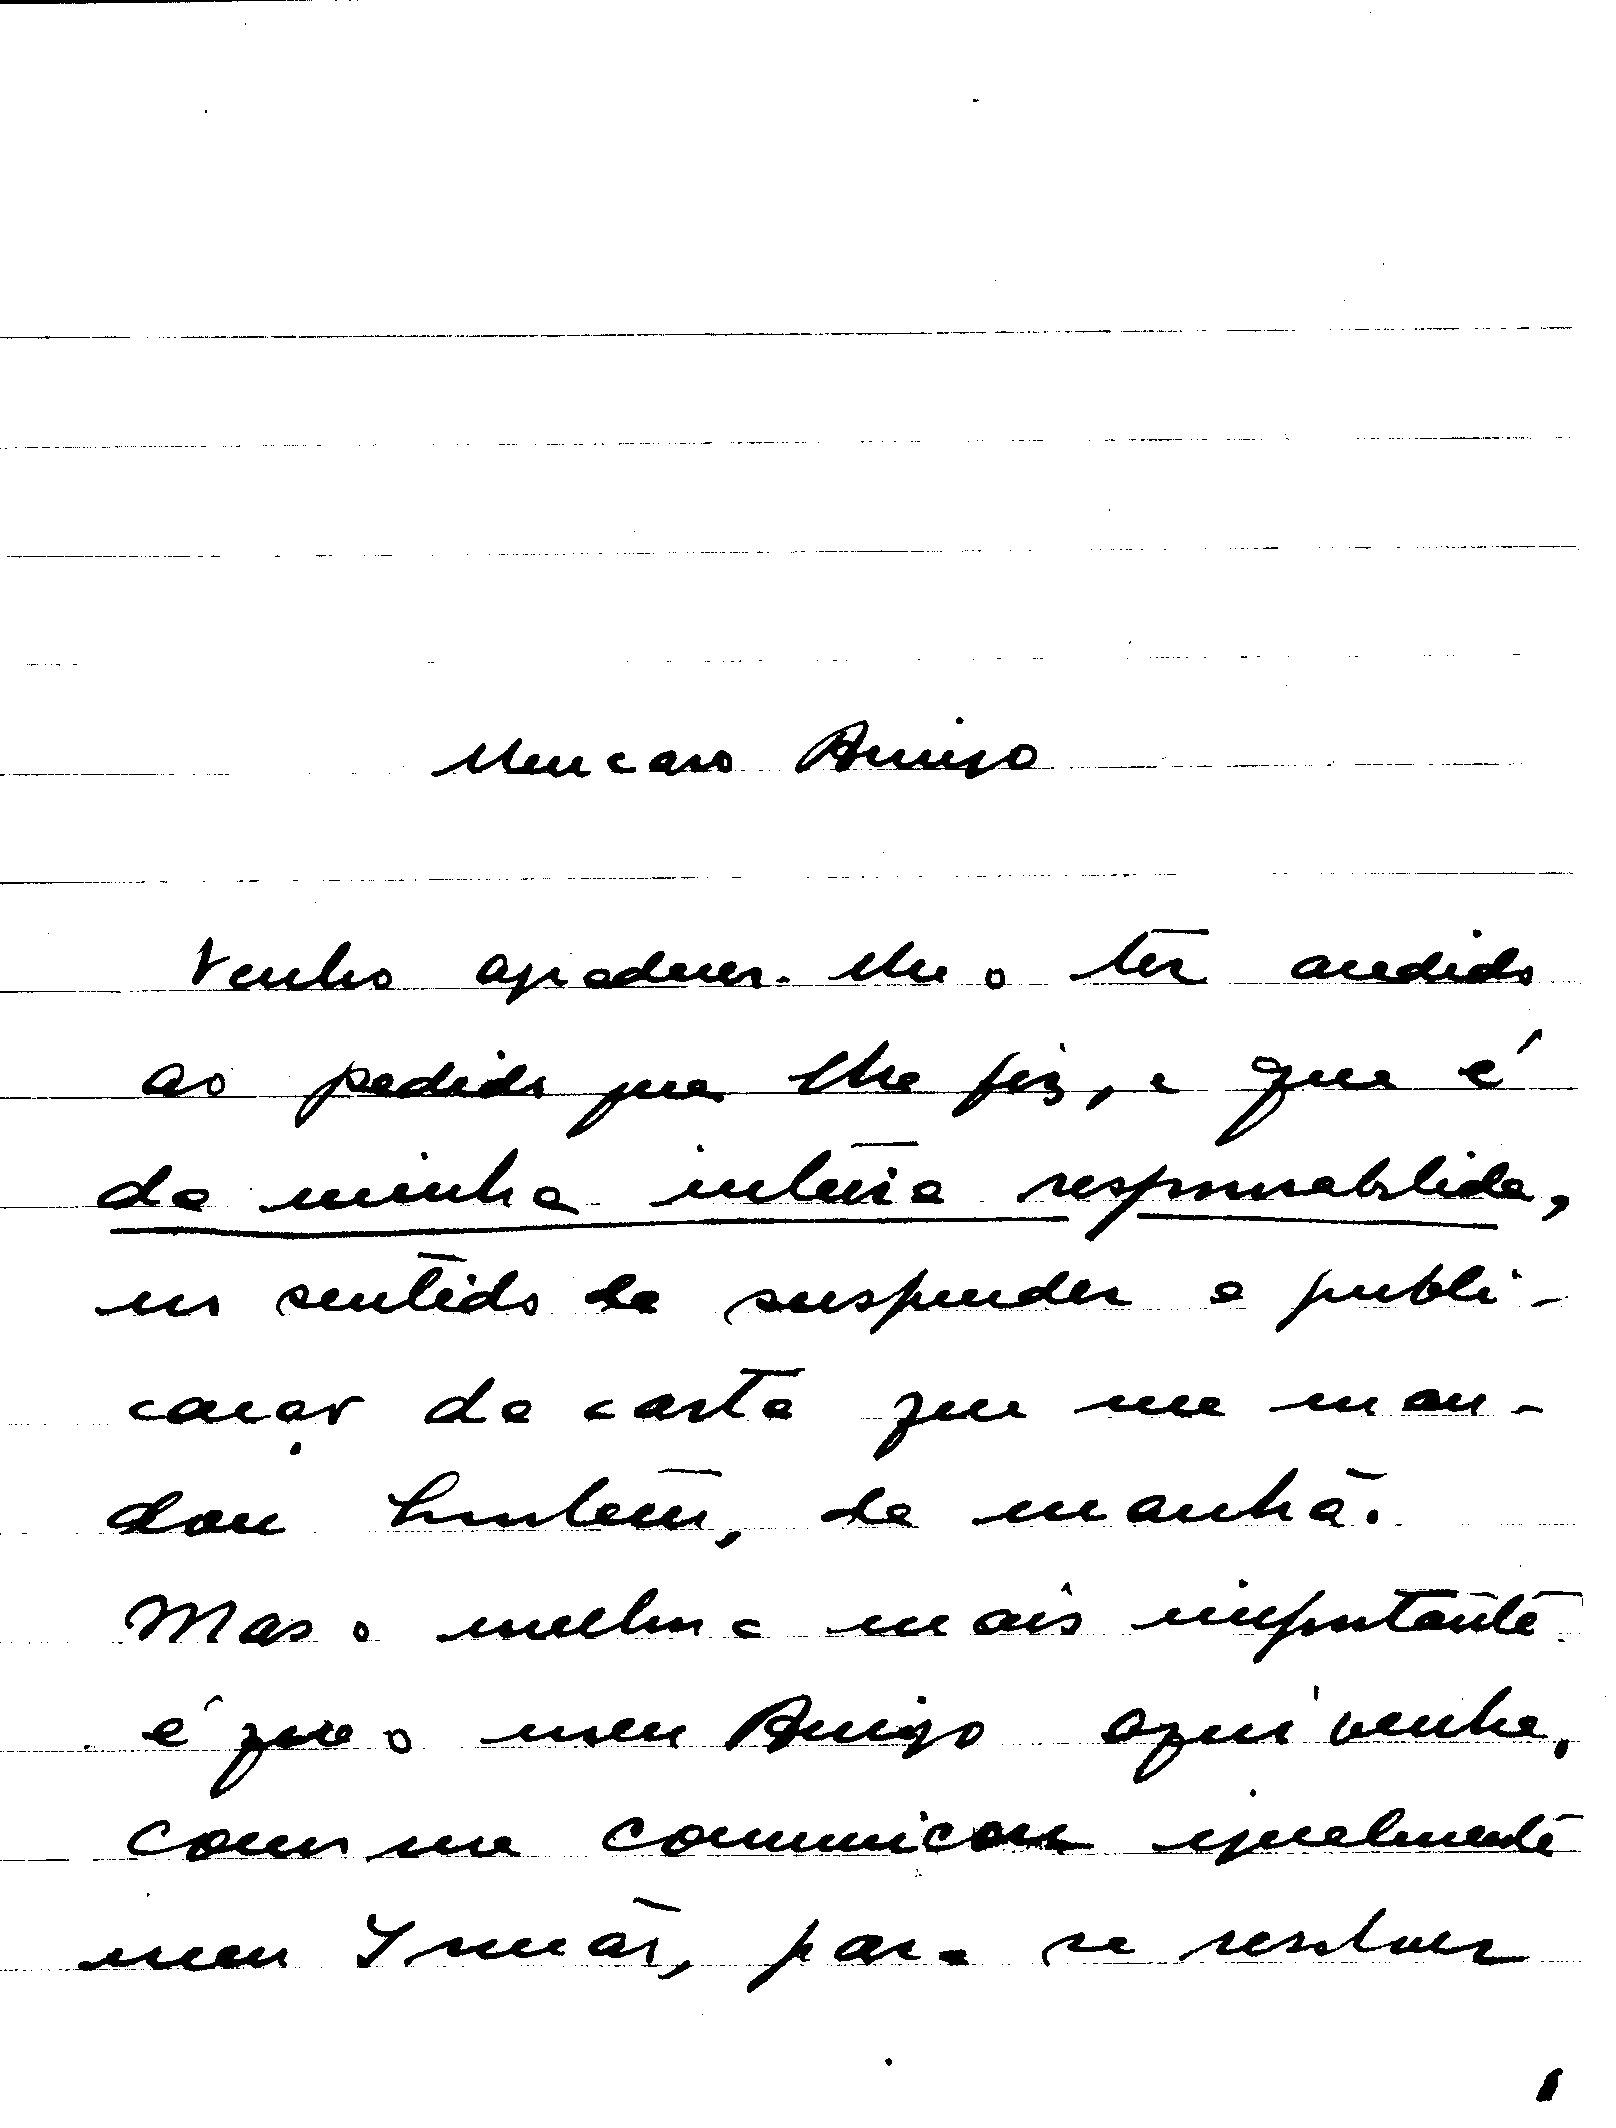 Meu caro Amigo
Venho agradecer-lhe o ter acedido
ao pedido que lhe fiz, e que é
da minha inteira responsabilida,
no sentido de suspender a publi-
cação da carta que me man-
dou hontem, de manhã.
Mas o melhor e mais importante
é que o meu Amigo aqui venha,
como me comunicou igualmente
meu Irmão, para se resolver